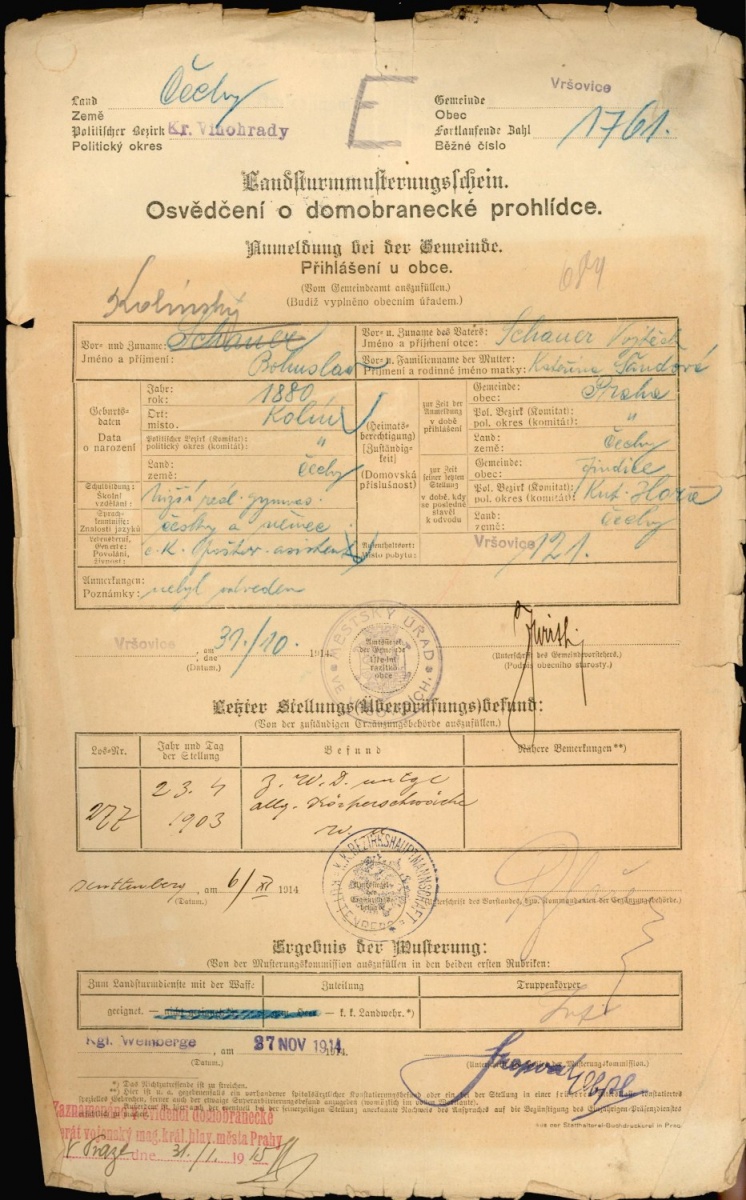 Land Země Čechy
E
Gemeinde Obec Vršovice
Politischer Bezirk Politický okres Kr. Vinohrady
Fortlaufende Zahl Běžné číslo 1761.
Landsturmmusterungsschein.
Osvědčení o domobranecké prohlídce.
Anmeldung bei der Gemeinde.
Přihlášení u obce.
(Vom Gemeindeamt auszufüllen.)
(Budiž vyplněno obecním úřadem.)
684
Kolínský
Vor- und Zuname: Jméno a příjmení: Schauer Bohuslav
Vor- u. Zuname des Vaters: Jméno a příjmení otce: Schauer Vojtěch
Vor- u. Familienname der Mutter: Příjmení a rodinné jméno matky: Kateřina Sandová
Geburtsdaten
Data o narození
Jahr: rok: 1880
Ort: místo. Kolín
Politischer Bezirk (Komitat): politický okres (komitát): "
Land: země: Čechy
(Heimatsberechtigung)
[Zuständigkeit]
(Domovská příslušnost)
zur Zeit der Anmeldung
v době přihlášení
Gemeinde: obec: Praha
Pol. Bezirk (Komitat): pol. okres (komitát): "
Land: země: Čechy
zur Zeit seiner letzten Stellung
v době, kdy se posledně stavěl k odvodu
Gemeinde: obec:
Pol. Bezirk (Komitat): pol. okres (komitát): Kut. Hora
Land: země: Čechy
Schulbildung: Školní vzdělání: Nižší real. gymnas.
Sprachkenntnisse: Znalosti jazyků česky a němec.
Lebensberuf, Gewerbe: Povolání, živnost: c. k. asistent
Aufenthaltsort: Místo pobytu: Vršovice 121.
Anmerkungen: Poznámky: nebyl odveden
Vršovice, am dne 31./10. 1914.
(Datum.)
MĚSTSKÝ ÚŘAD VE VRŠOVICÍCH.
(Unterschrift des Gemeindevorstehers.)
(Podpis obecního starosty.)
Letzter Stellungs(Überprüfungs)befund:
(Von der zuständigen Ergänzungsbehörde auszufüllen.)
Los-Nr.
Jahr und Tag der Stellung
Befund
Nähere Bemerkungen**)
277
23. 4 1903
Z. W. D. untgl
allg. Körperschwäche
Kuttenberg, am 6/XI 1914
(Datum.)
K.K. BEZIRKSHAUPTMANNSCHAFT KUTTENBERG
Unterschrift des Vorstandes, bzw. Kommandanten der Ergänzungsbehörde.)
Ergebnis der Musterung:
(Von der Musterungskommission auszufüllen in den beiden ersten Rubriken:
Zum Landsturmdienste mit der Waffe
Zuteilung
Truppenkörper
geeignet. — nicht geeignet
k. k. Landwehr.*)
Kgl. Weinberge, am 27 NOV 1914 1914.
(Datum.)
*) Das Nichtzutreffende ist zu streichen.
Aus der Statthalterei-Buchdruckerei in Prag.
Zaznamenáno v evidenci domobranecké
referát vojenský mag. král. hlav. města Prahy
V Praze dne 31./1. 1915